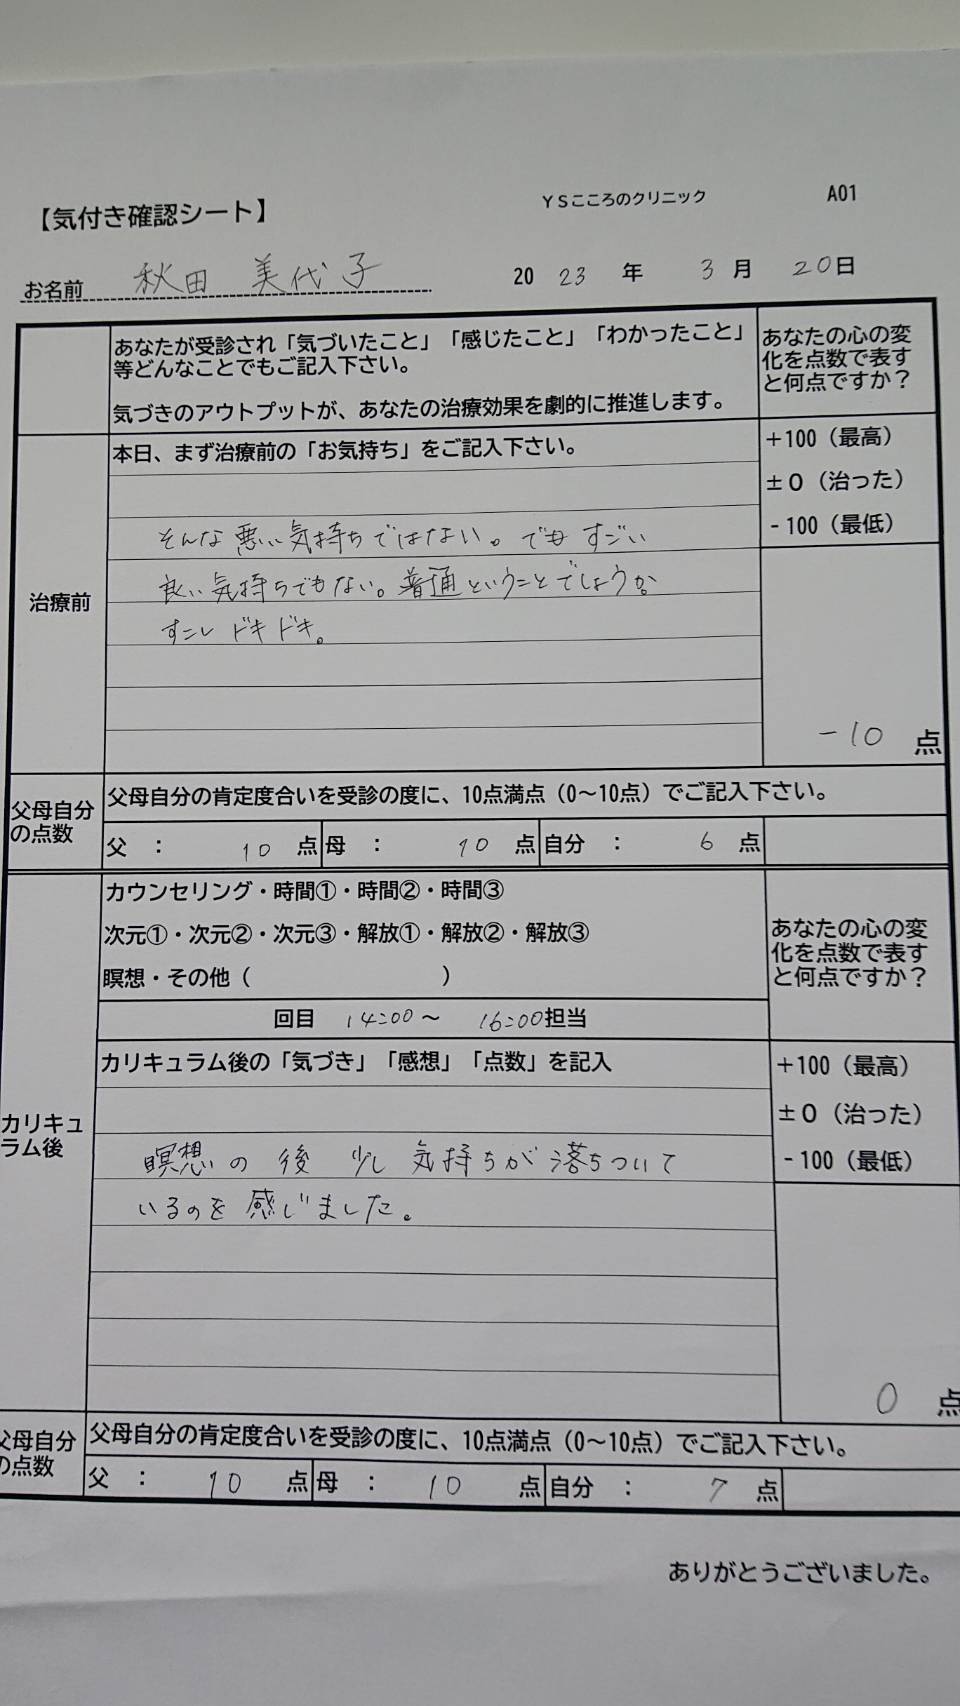 【気付き確認シート】
YSこころのクリニック
A01
お名前 秋田 美代子
2023年 3月 20日
あなたが受診され「気づいたこと」「感じたこと」「わかったこと」
等どんなことでもご記入下さい。
気づきのアウトプットが、あなたの治療効果を劇的に推進します。
あなたの心の変
化を点数で表す
と何点ですか？
治療前
本日、まず治療前の「お気持ち」をご記入下さい。
そんな悪い気持ちではない。でも すごい
良い気持ちでもない。普通ということでしょうか。
すこし ドキドキ。
+100（最高）
±0（治った）
-100（最低）
-10 点
父母自分
の点数
父母自分の肯定度合いを受診の度に、10点満点（0〜10点）でご記入下さい。
父 ： 10 点 母 ： 10 点 自分 ： 6 点
カリキュ
ラム後
カウンセリング・時間①・時間②・時間③
次元①・次元②・次元③・解放①・解放②・解放③
瞑想・その他（ ）
回目 14:00〜 16:00担当
あなたの心の変
化を点数で表す
と何点ですか？
カリキュラム後の「気づき」「感想」「点数」を記入
瞑想の後 少し気持ちが落ちついて
いるのを感じました。
+100（最高）
±0（治った）
-100（最低）
0 点
父母自分
の点数
父母自分の肯定度合いを受診の度に、10点満点（0〜10点）でご記入下さい。
父 ： 10 点 母 ： 10 点 自分 ： 7 点
ありがとうございました。